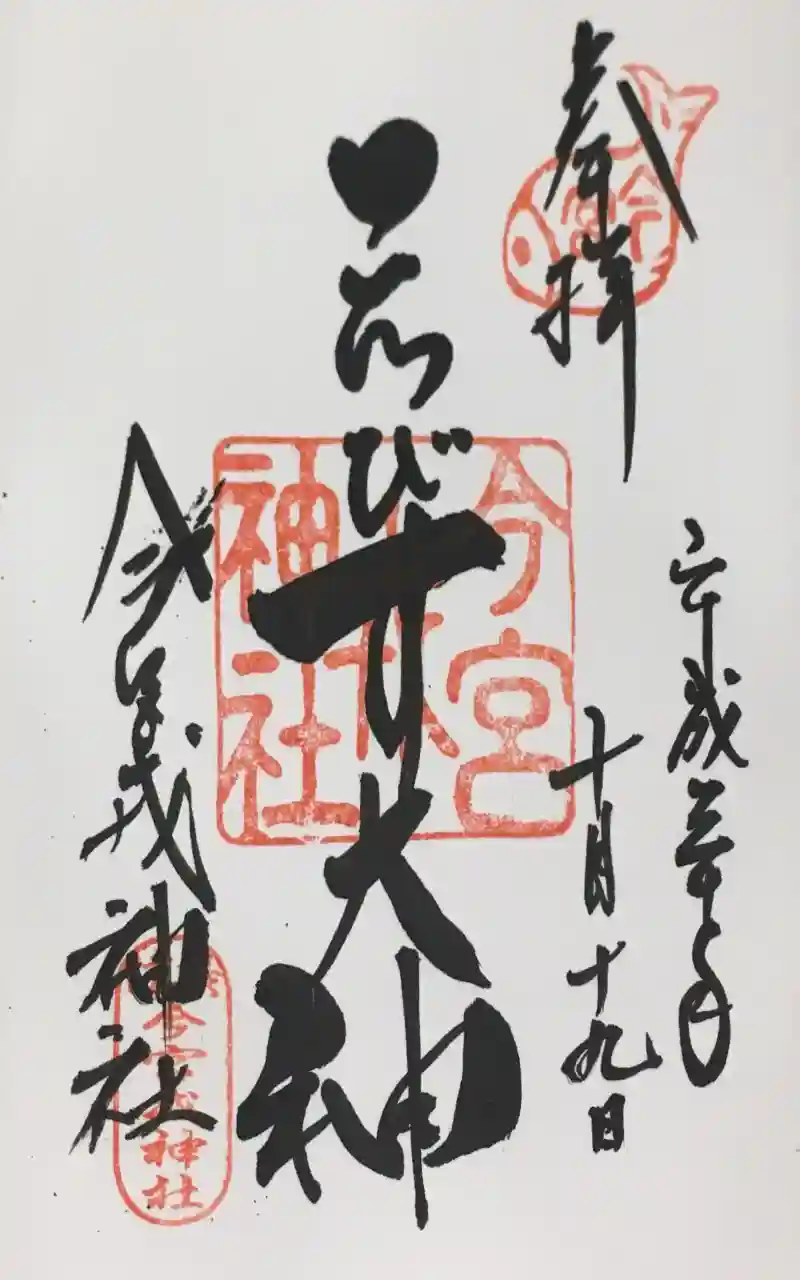 奉拝
今宮
平成三十年
十月十九日
ゑびす大神
今宮戎神社
今宮戎神社
今宮戎神社